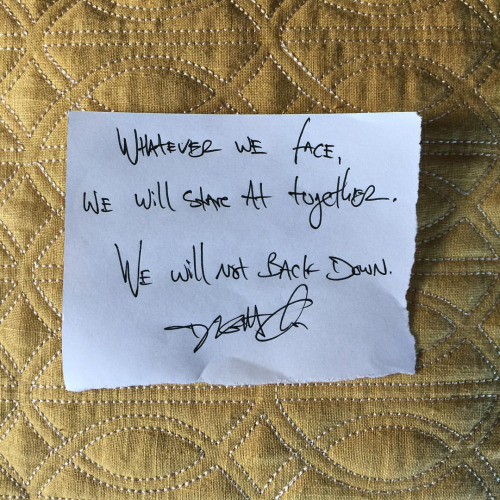 Whatever we face,
we will stare at together.
We will not back down.